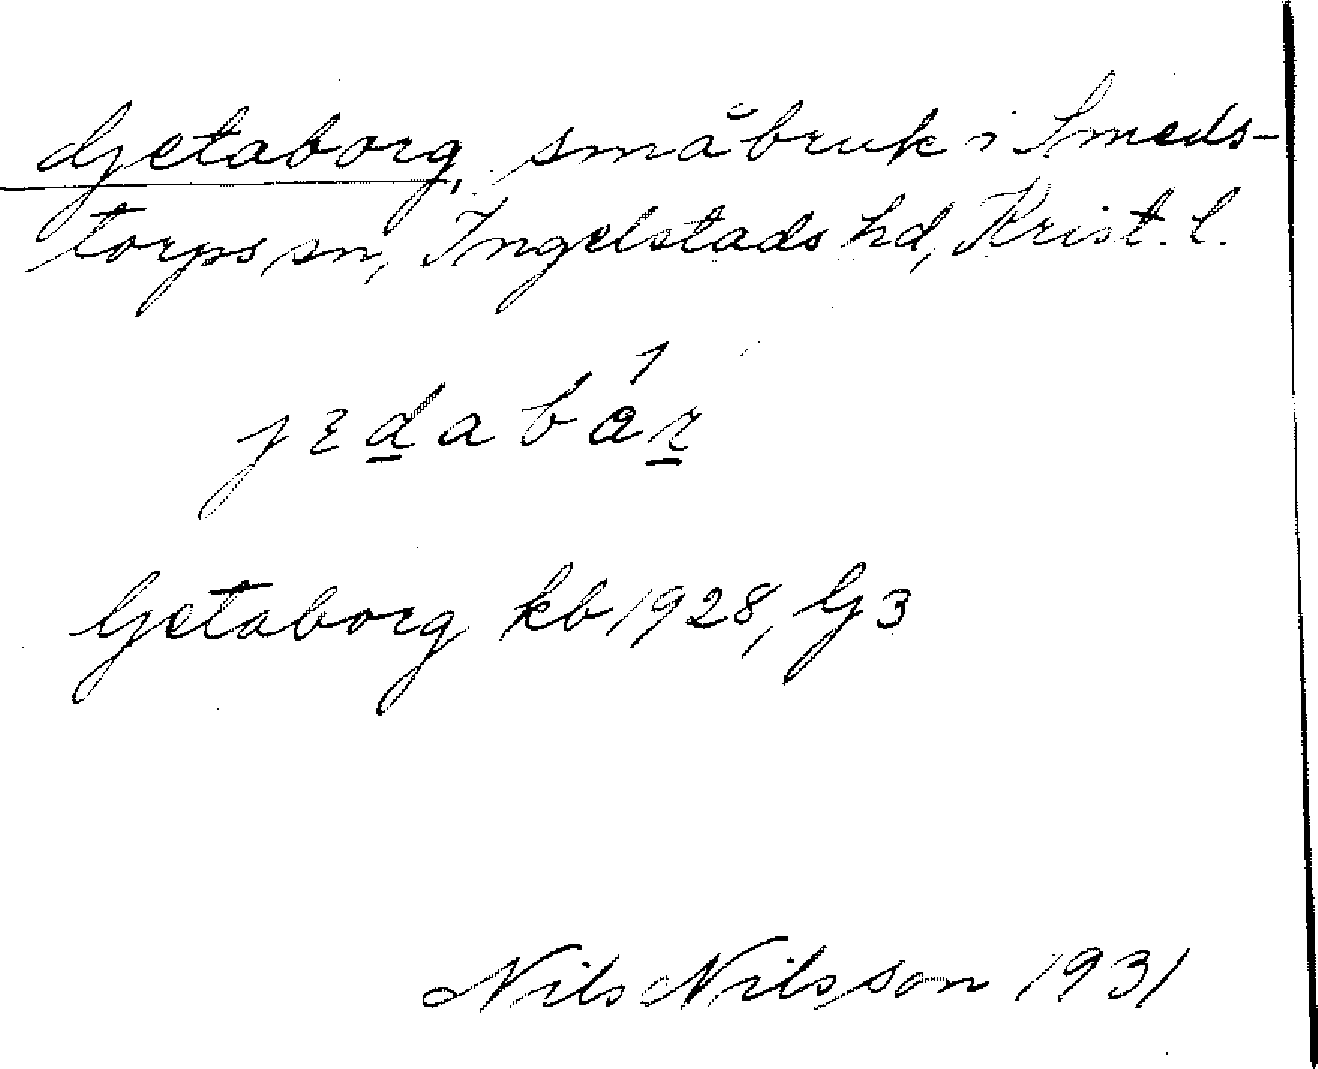 Getaborg, småbruk i Smeds-
torps sn, Ingelstads hd, Krist. l.
jɛdabár
Getaborg kb 1928, G 3
Nils Nilsson 1931